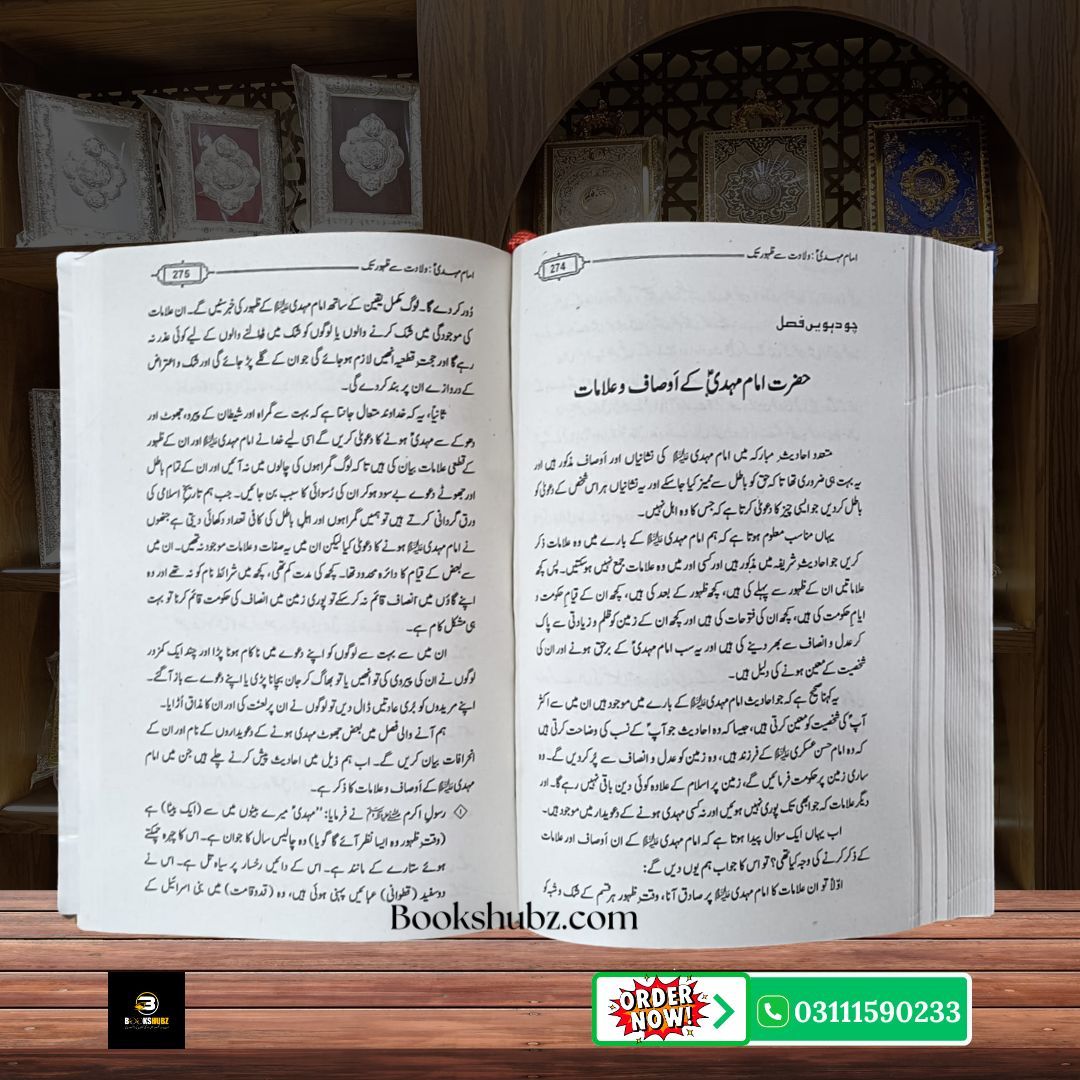 274
امام مہدیؑ: ولادت سے ظہور تک
چودہویں فصل
حضرت امام مہدیؑ کے اَوصاف و علامات
متعدد احادیثِ مبارکہ میں امام مہدی علیہ السلام کی نشانیاں اور اَوصاف مذکور ہیں اور
یہ بہت ہی ضروری تھا تاکہ حق کو باطل سے تمیز کیا جاسکے اور یہ نشانیاں ہر اس شخص کے دعویٰ کو
باطل کردیں جو ایسی چیز کا دعویٰ کرتا ہے کہ جس کا وہ اہل نہیں۔
یہاں مناسب معلوم ہوتا ہے کہ ہم امام مہدی علیہ السلام کے بارے میں وہ علامات ذکر
کریں جو احادیثِ شریفہ میں مذکور ہیں اور کسی اور میں وہ علامات جمع نہیں ہوسکتیں۔ پس کچھ
علامتیں ان کے ظہور سے پہلے کی ہیں، کچھ ظہور کے بعد کی ہیں، کچھ ان کے قیامِ حکومت و
ایامِ حکومت کی ہیں، کچھ ان کی فتوحات کی ہیں اور کچھ ان کے زمین کو ظلم و زیادتی سے پاک
کر عدل و انصاف سے بھر دینے کی ہیں اور یہ سب امام مہدیؑ کے برحق ہونے اور ان کی
شخصیت کے معین ہونے کی دلیل ہیں۔
یہ کہنا صحیح ہے کہ جو احادیث امام مہدی علیہ السلام کے بارے میں موجود ہیں ان میں سے اکثر
آپؑ کی شخصیت کو معین کرتی ہیں، جیسا کہ وہ احادیث جو آپؑ کے نسب کی وضاحت کرتی ہیں
کہ وہ امام حسن عسکری علیہ السلام کے فرزند ہیں، وہ زمین کو عدل و انصاف سے پُر کردیں گے۔ وہ
ساری زمین پر حکومت فرمائیں گے، زمین پر اسلام کے علاوہ کوئی دین باقی نہیں رہے گا۔ اور
دیگر علامات کہ جو ابھی تک پوری نہیں ہوئیں اور نہ کسی مہدی ہونے کے دعویدار میں موجود ہیں۔
اب یہاں ایک سوال پیدا ہوتا ہے کہ امام مہدی علیہ السلام کے ان اَوصاف اور علامات
کے ذکر کرنے کی وجہ کیا تھی؟ تو اس کا جواب ہم یوں دیں گے:
اوّلاً تو ان علامات کا امام مہدی علیہ السلام پر صادق آنا، وقتِ ظہور ہر قسم کے شک و شبہ کو
275
امام مہدیؑ: ولادت سے ظہور تک
دُور کردے گا۔ لوگ مکمل یقین کے ساتھ امام مہدی علیہ السلام کے ظہور کی خبر سنیں گے۔ ان علامات
کی موجودگی میں شک کرنے والوں یا لوگوں کو شک میں ڈالنے والوں کے لیے کوئی عذر نہ
رہے گا اور حجتِ قطعیہ انھیں لازم ہوجائے گی جو ان کے گلے پڑ جائے گی اور شک و اعتراض
کے دروازے ان پر بند کردے گی۔
ثانیاً، یہ کہ خداوند متعال جانتا ہے کہ بہت سے گمراہ اور شیطان کے پیرو، جھوٹ اور
دھوکے سے مہدیؑ ہونے کا دعویٰ کریں گے اسی لیے خدا نے امام مہدی علیہ السلام اور ان کے ظہور
کے قطعی علامات بیان کی ہیں تاکہ لوگ گمراہوں کی چالوں میں نہ آئیں اور ان کے تمام باطل
اور جھوٹے دعوے بے سود ہوکر ان کی رُسوائی کا سبب بن جائیں۔ جب ہم تاریخِ اسلامی کی
ورق گردانی کرتے ہیں تو ہمیں گمراہوں اور اہلِ باطل کی کافی تعداد دکھائی دیتی ہے جنھوں
نے امام مہدی علیہ السلام ہونے کا دعویٰ کیا لیکن ان میں یہ صفات و علامات موجود نہ تھیں۔ ان میں
سے بعض کے قیام کا دائرہ محدود تھا۔ کچھ کی مدت کم تھی، کچھ میں شرائط نام کو نہ تھے اور وہ
اپنے گاؤں میں انصاف قائم نہ کرسکے تو پوری زمین میں انصاف کی حکومت قائم کرنا تو بہت
ہی مشکل کام ہے۔
ان میں سے بہت سے لوگوں کو اپنے دعوے میں ناکام ہونا پڑا اور چند ایک کمزور
لوگوں نے ان کی پیروی کی تو انھیں یا تو بھاگ کر جان بچانا پڑی یا اپنے دعوے سے باز آگئے۔
اپنے مریدوں کو بُری عادتیں ڈال دیں تو لوگوں نے ان پر لعنت کی اور ان کا مذاق اُڑایا۔
ہم آنے والی فصل میں بعض جھوٹ مہدی ہونے کے دعویداروں کے نام اور ان کے
انحرافات بیان کریں گے۔ اب ہم ذیل میں احادیث پیش کرنے چلے ہیں جن میں امام
مہدی علیہ السلام کے اَوصاف و علامات کا ذکر ہے۔
① رسولِ اکرم صلی اللہ علیہ وآلہ وسلم نے فرمایا: "مہدیؑ میرے بیٹوں میں سے (ایک بیٹا) ہے
(وقتِ ظہور وہ ایسا نظر آئے گا گویا) وہ چالیس سال کا جوان ہے۔ اس کا چہرہ چمکتے
ہوئے ستارے کے مانند ہے۔ اس کے دائیں رخسار پر سیاہ تل ہے۔ اس نے
دو سفید (قطوانی) عبائیں پہنی ہوئی ہیں، وہ (قدوقامت) میں بنی اسرائیل کے
Bookshubz.com
BOOKSHUBZ
ORDER NOW!
03111590233